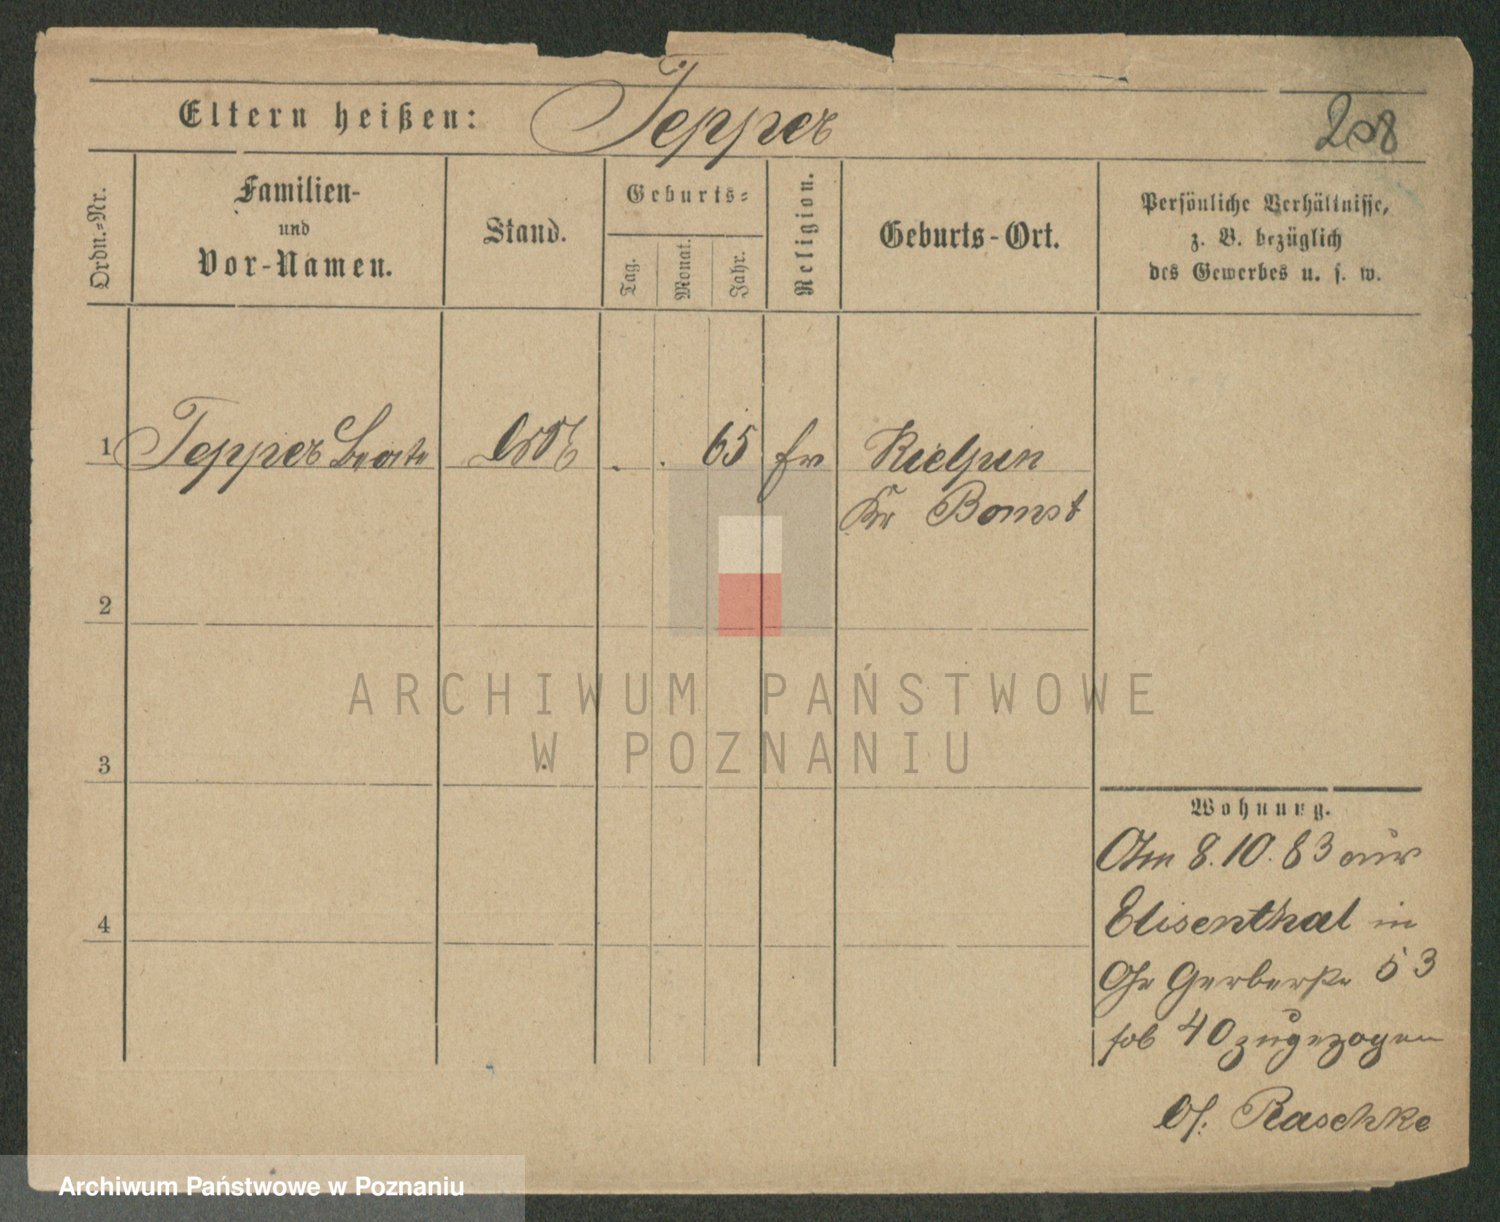 Eltern heißen: Tepper
208
Ordn.-Nr.
Familien-
und
Vor-Namen.
Stand.
Geburts-
Tag.
Monat.
Jahr.
Religion.
Geburts-Ort.
Persönliche Verhältnisse,
z. B. bezüglich
des Gewerbes u. s. w.
1 Tepper Beate . . 65 ev Kielpin
Kr Bomst
2
3
4
ARCHIWUM PAŃSTWOWE
W POZNANIU
Wohnung.
Am 8.10.83 aus
Elisenthal in
Gr Gerberstr 53
sub 40 zugezogen
bei Raschke
Archiwum Państwowe w Poznaniu